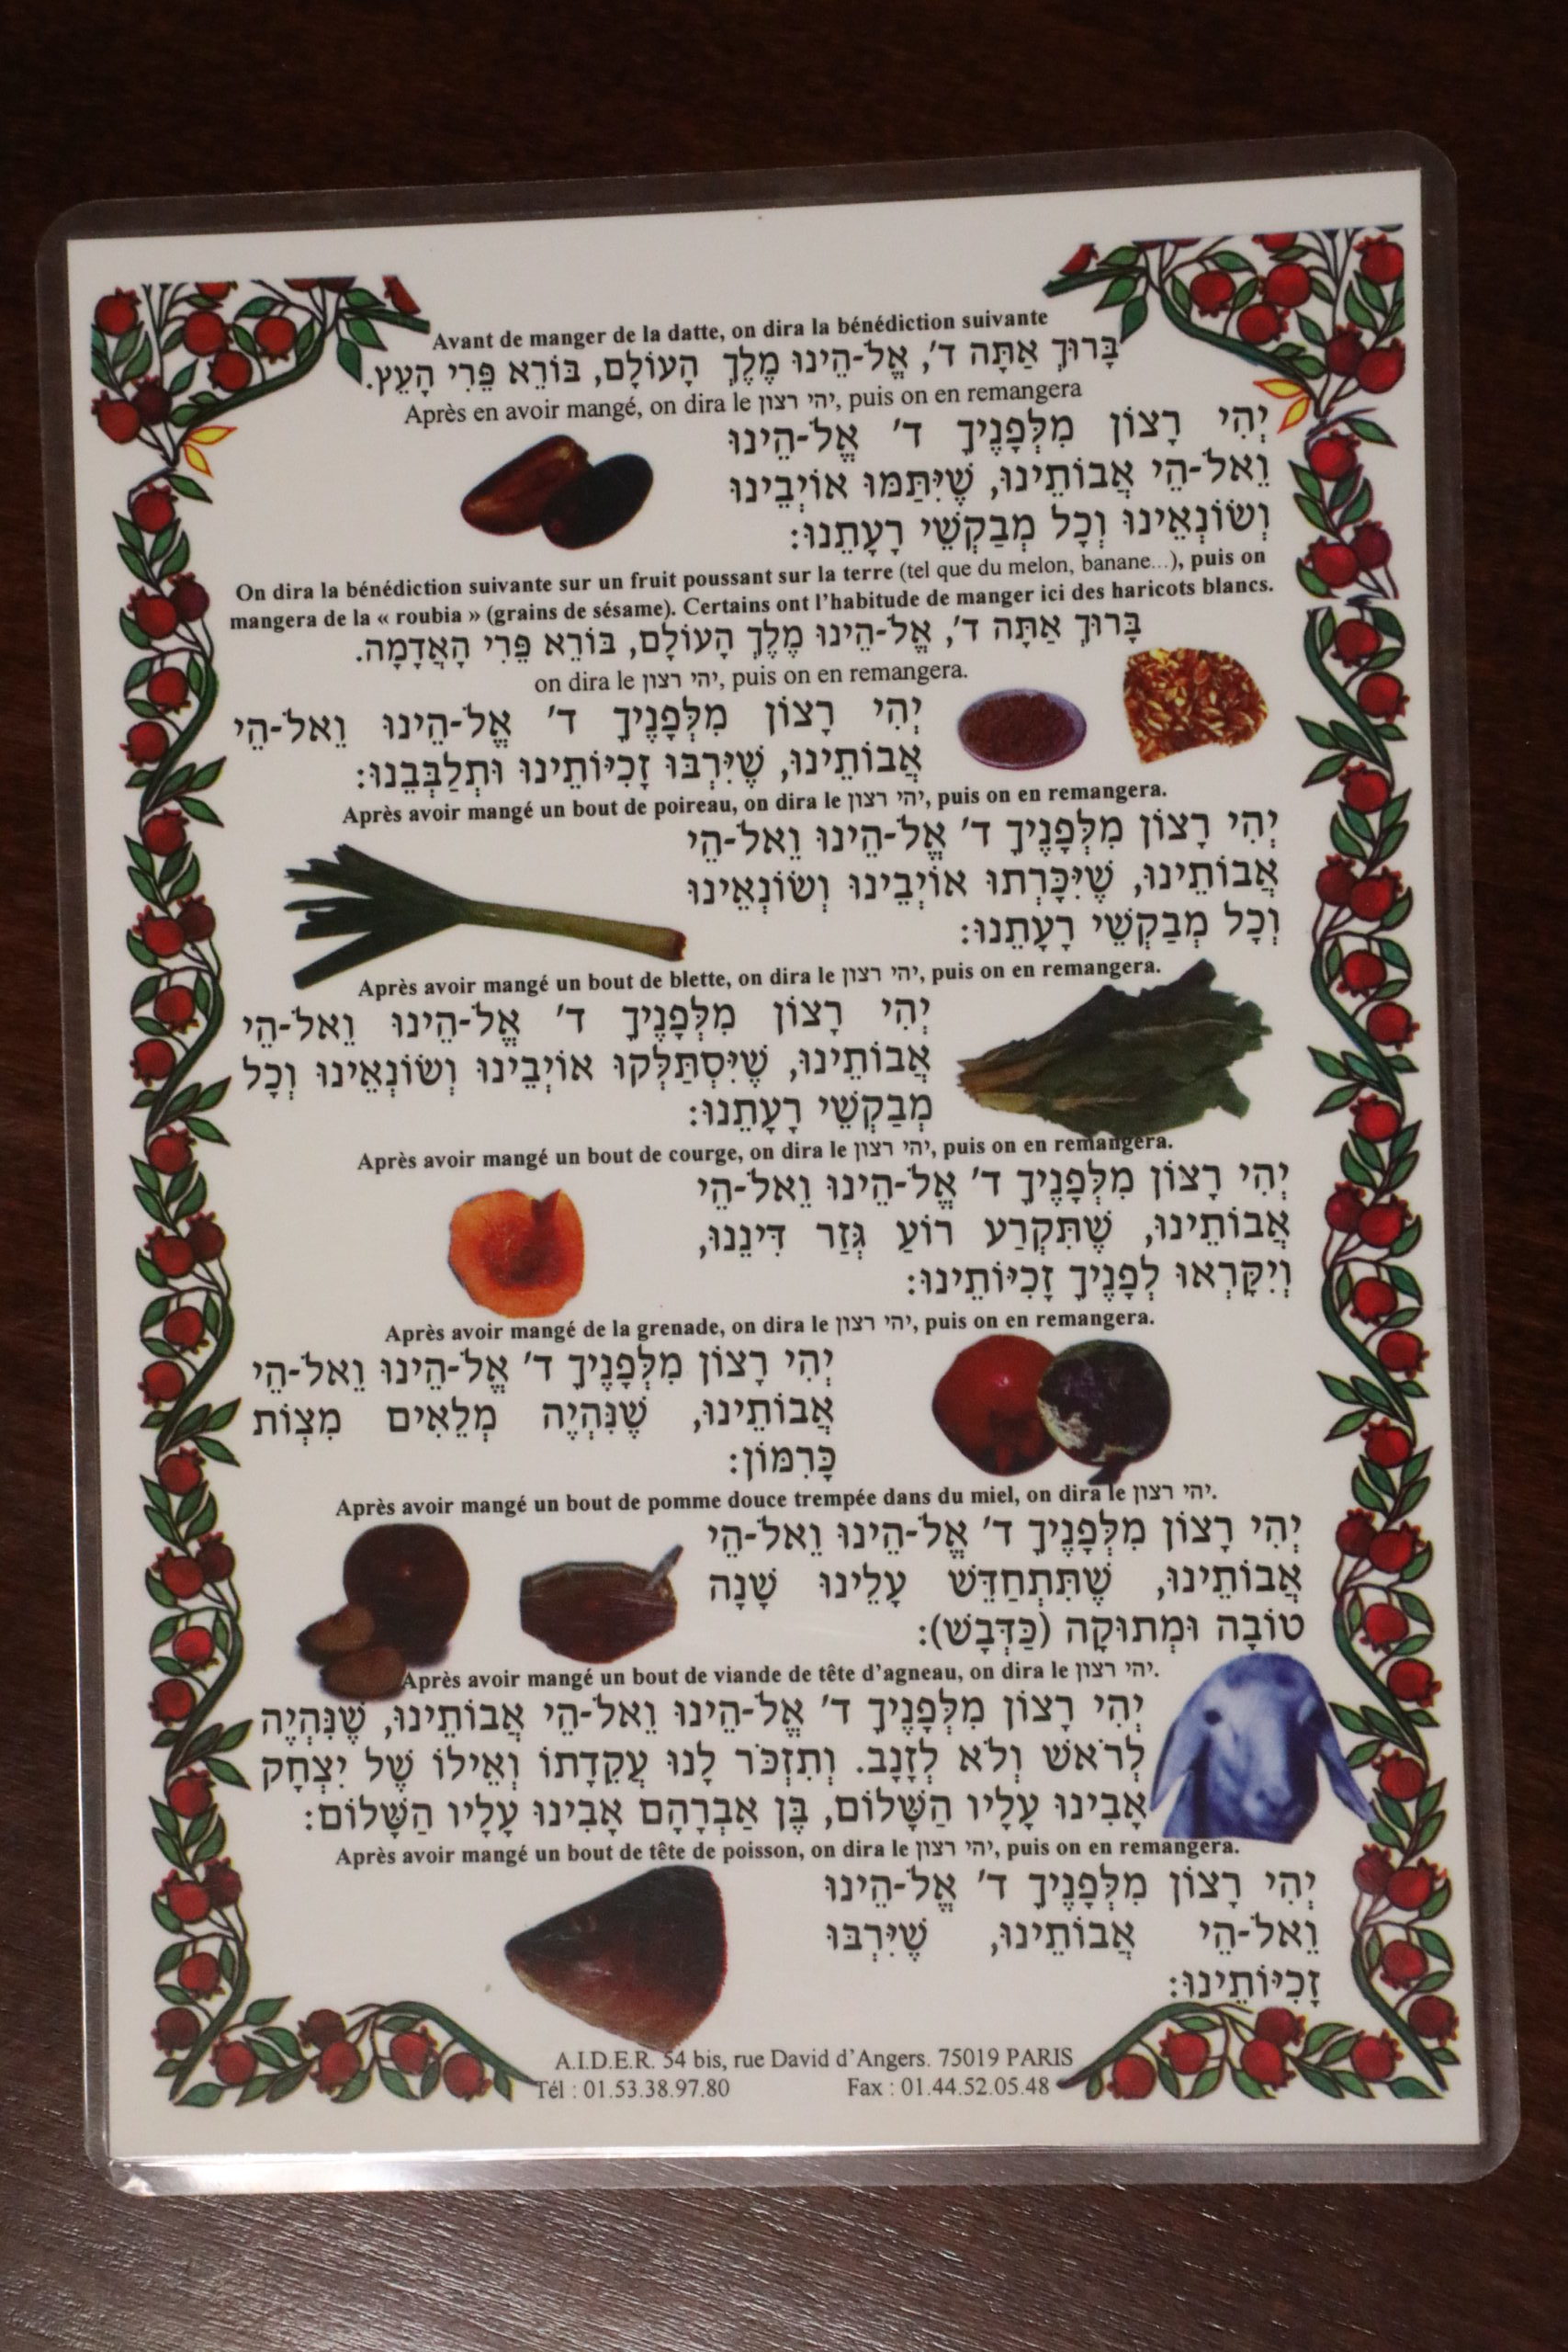 Avant de manger de la datte, on dira la bénédiction suivante
בָּרוּךְ אַתָּה ד', אֱל-הֵינוּ מֶלֶךְ הָעוֹלָם, בּוֹרֵא פְּרִי הָעֵץ.
Après en avoir mangé, on dira le יהי רצון, puis on en remangera
יְהִי רָצוֹן מִלְּפָנֶיךָ ד' אֱל-הֵינוּ
וֵאל-הֵי אֲבוֹתֵינוּ, שֶׁיִּתַּמּוּ אוֹיְבֵינוּ
וְשׂוֹנְאֵינוּ וְכָל מְבַקְשֵׁי רָעָתֵנוּ:
On dira la bénédiction suivante sur un fruit poussant sur la terre (tel que du melon, banane...), puis on
mangera de la « roubia » (grains de sésame). Certains ont l'habitude de manger ici des haricots blancs.
בָּרוּךְ אַתָּה ד', אֱל-הֵינוּ מֶלֶךְ הָעוֹלָם, בּוֹרֵא פְּרִי הָאֲדָמָה.
on dira le יהי רצון, puis on en remangera.
יְהִי רָצוֹן מִלְּפָנֶיךָ ד' אֱל-הֵינוּ וֵאל-הֵי
אֲבוֹתֵינוּ, שֶׁיִּרְבּוּ זָכִיּוֹתֵינוּ וּתְלַבְּבֵנוּ:
Après avoir mangé un bout de poireau, on dira le יהי רצון, puis on en remangera.
יְהִי רָצוֹן מִלְּפָנֶיךָ ד' אֱל-הֵינוּ וֵאל-הֵי
אֲבוֹתֵינוּ, שֶׁיִּכָּרְתוּ אוֹיְבֵינוּ וְשׂוֹנְאֵינוּ
וְכָל מְבַקְשֵׁי רָעָתֵנוּ:
Après avoir mangé un bout de blette, on dira le יהי רצון, puis on en remangera.
יְהִי רָצוֹן מִלְּפָנֶיךָ ד' אֱל-הֵינוּ וֵאל-הֵי
אֲבוֹתֵינוּ, שֶׁיִּסְתַּלְּקוּ אוֹיְבֵינוּ וְשׂוֹנְאֵינוּ וְכָל
מְבַקְשֵׁי רָעָתֵנוּ:
Après avoir mangé un bout de courge, on dira le יהי רצון, puis on en remangera.
יְהִי רָצוֹן מִלְּפָנֶיךָ ד' אֱל-הֵינוּ וֵאל-הֵי
אֲבוֹתֵינוּ, שֶׁתִּקְרַע רוֹעַ גְּזַר דִּינֵנוּ,
וְיִקָּרְאוּ לְפָנֶיךָ זָכִיּוֹתֵינוּ:
Après avoir mangé de la grenade, on dira le יהי רצון, puis on en remangera.
יְהִי רָצוֹן מִלְּפָנֶיךָ ד' אֱל-הֵינוּ וֵאל-הֵי
אֲבוֹתֵינוּ, שֶׁנִּהְיֶה מְלֵאִים מִצְוֹת
כָּרִמּוֹן:
Après avoir mangé un bout de pomme douce trempée dans du miel, on dira le יהי רצון.
יְהִי רָצוֹן מִלְּפָנֶיךָ ד' אֱל-הֵינוּ וֵאל-הֵי
אֲבוֹתֵינוּ, שֶׁתִּתְחַדֵּשׁ עָלֵינוּ שָׁנָה
טוֹבָה וּמְתוּקָה (כַּדְּבָשׁ):
Après avoir mangé un bout de viande de tête d'agneau, on dira le יהי רצון.
יְהִי רָצוֹן מִלְּפָנֶיךָ ד' אֱל-הֵינוּ וֵאל-הֵי אֲבוֹתֵינוּ, שֶׁנִּהְיֶה
לְרֹאשׁ וְלֹא לְזָנָב. וְתִזְכֹּר לָנוּ עֲקֵדָתוֹ וְאֵילוֹ שֶׁל יִצְחָק
אָבִינוּ עָלָיו הַשָּׁלוֹם, בֶּן אַבְרָהָם אָבִינוּ עָלָיו הַשָּׁלוֹם:
Après avoir mangé un bout de tête de poisson, on dira le יהי רצון, puis on en remangera.
יְהִי רָצוֹן מִלְּפָנֶיךָ ד' אֱל-הֵינוּ
וֵאל-הֵי אֲבוֹתֵינוּ, שֶׁיִּרְבּוּ
זָכִיּוֹתֵינוּ:
A.I.D.E.R. 54 bis, rue David d'Angers. 75019 PARIS
Tél : 01.53.38.97.80 Fax : 01.44.52.05.48